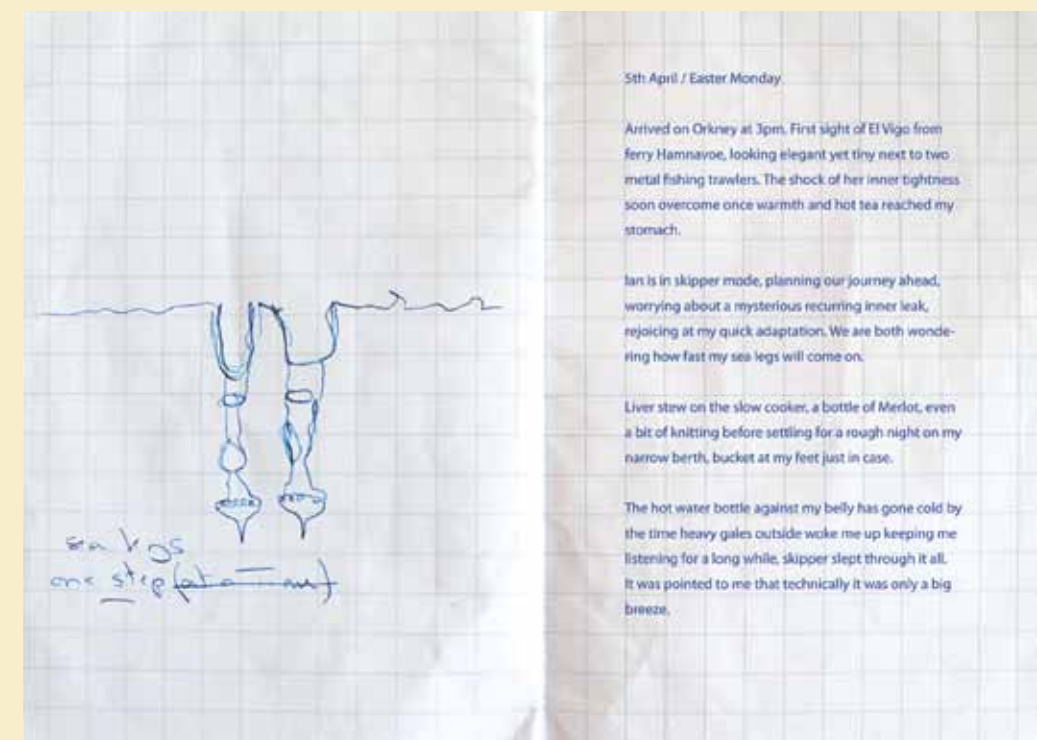 sea legs
one step (at a
5th April / Easter Monday
Arrived on Orkney at 3pm. First sight of El Vigo from
ferry Hamnavoe, looking elegant yet tiny next to two
metal fishing trawlers. The shock of her inner tightness
soon overcome once warmth and hot tea reached my
stomach.
Ian is in skipper mode, planning our journey ahead,
worrying about a mysterious recurring inner leak,
rejoicing at my quick adaptation. We are both wonde-
ring how fast my sea legs will come on.
Liver stew on the slow cooker, a bottle of Merlot, even
a bit of knitting before settling for a rough night on my
narrow berth, bucket at my feet just in case.
The hot water bottle against my belly has gone cold by
the time heavy gales outside woke me up keeping me
listening for a long while, skipper slept through it all.
It was pointed to me that technically it was only a big
breeze.